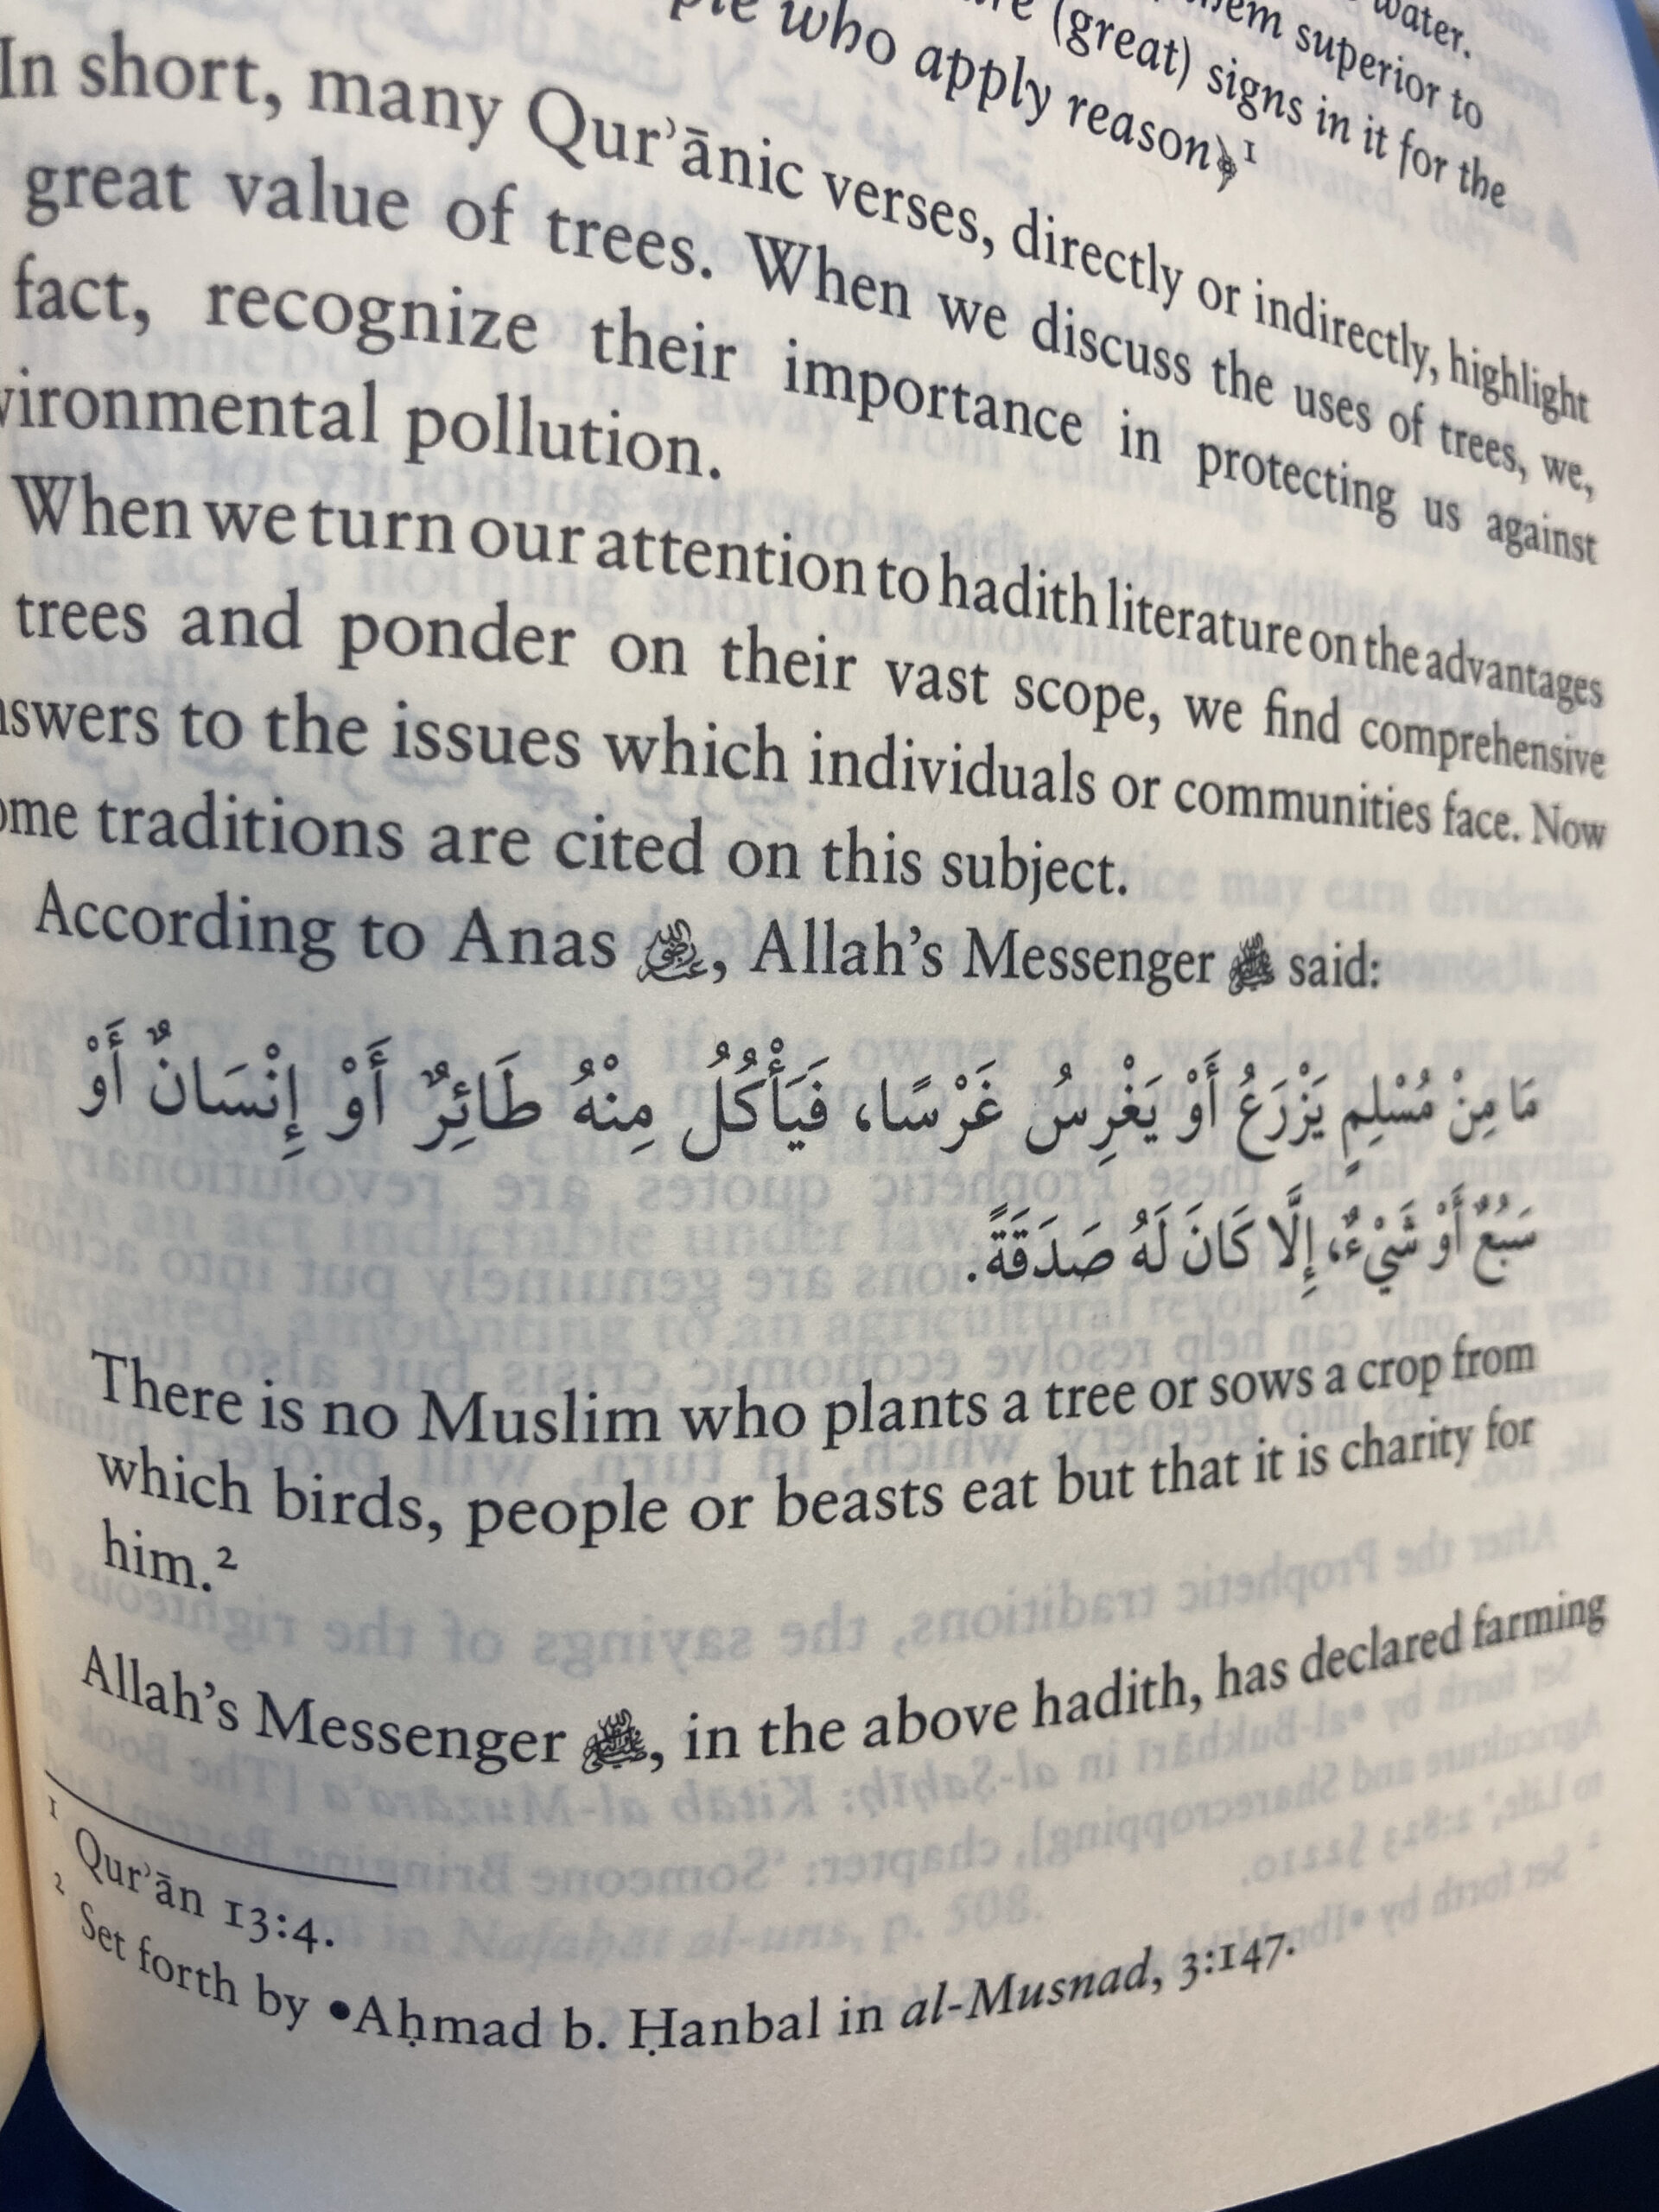 water.
them superior to
(great) signs in it for the
who apply reason﴾¹
In short, many Qurʾānic verses, directly or indirectly, highlight
great value of trees. When we discuss the uses of trees, we,
fact, recognize their importance in protecting us against
vironmental pollution.
When we turn our attention to hadith literature on the advantages
trees and ponder on their vast scope, we find comprehensive
nswers to the issues which individuals or communities face. Now
ome traditions are cited on this subject.
According to Anas رضي الله عنه, Allah’s Messenger ﷺ said:
مَا مِنْ مُسْلِمٍ يَزْرَعُ أَوْ يَغْرِسُ غَرْسًا، فَيَأْكُلُ مِنْهُ طَائِرٌ أَوْ إِنْسَانٌ أَوْ
سَبُعٌ أَوْ شَيْءٌ، إِلَّا كَانَ لَهُ صَدَقَةً.
There is no Muslim who plants a tree or sows a crop from
which birds, people or beasts eat but that it is charity for
him.²
Allah’s Messenger ﷺ, in the above hadith, has declared farming
¹ Qurʾān 13:4.
² Set forth by •Aḥmad b. Ḥanbal in al-Musnad, 3:147.